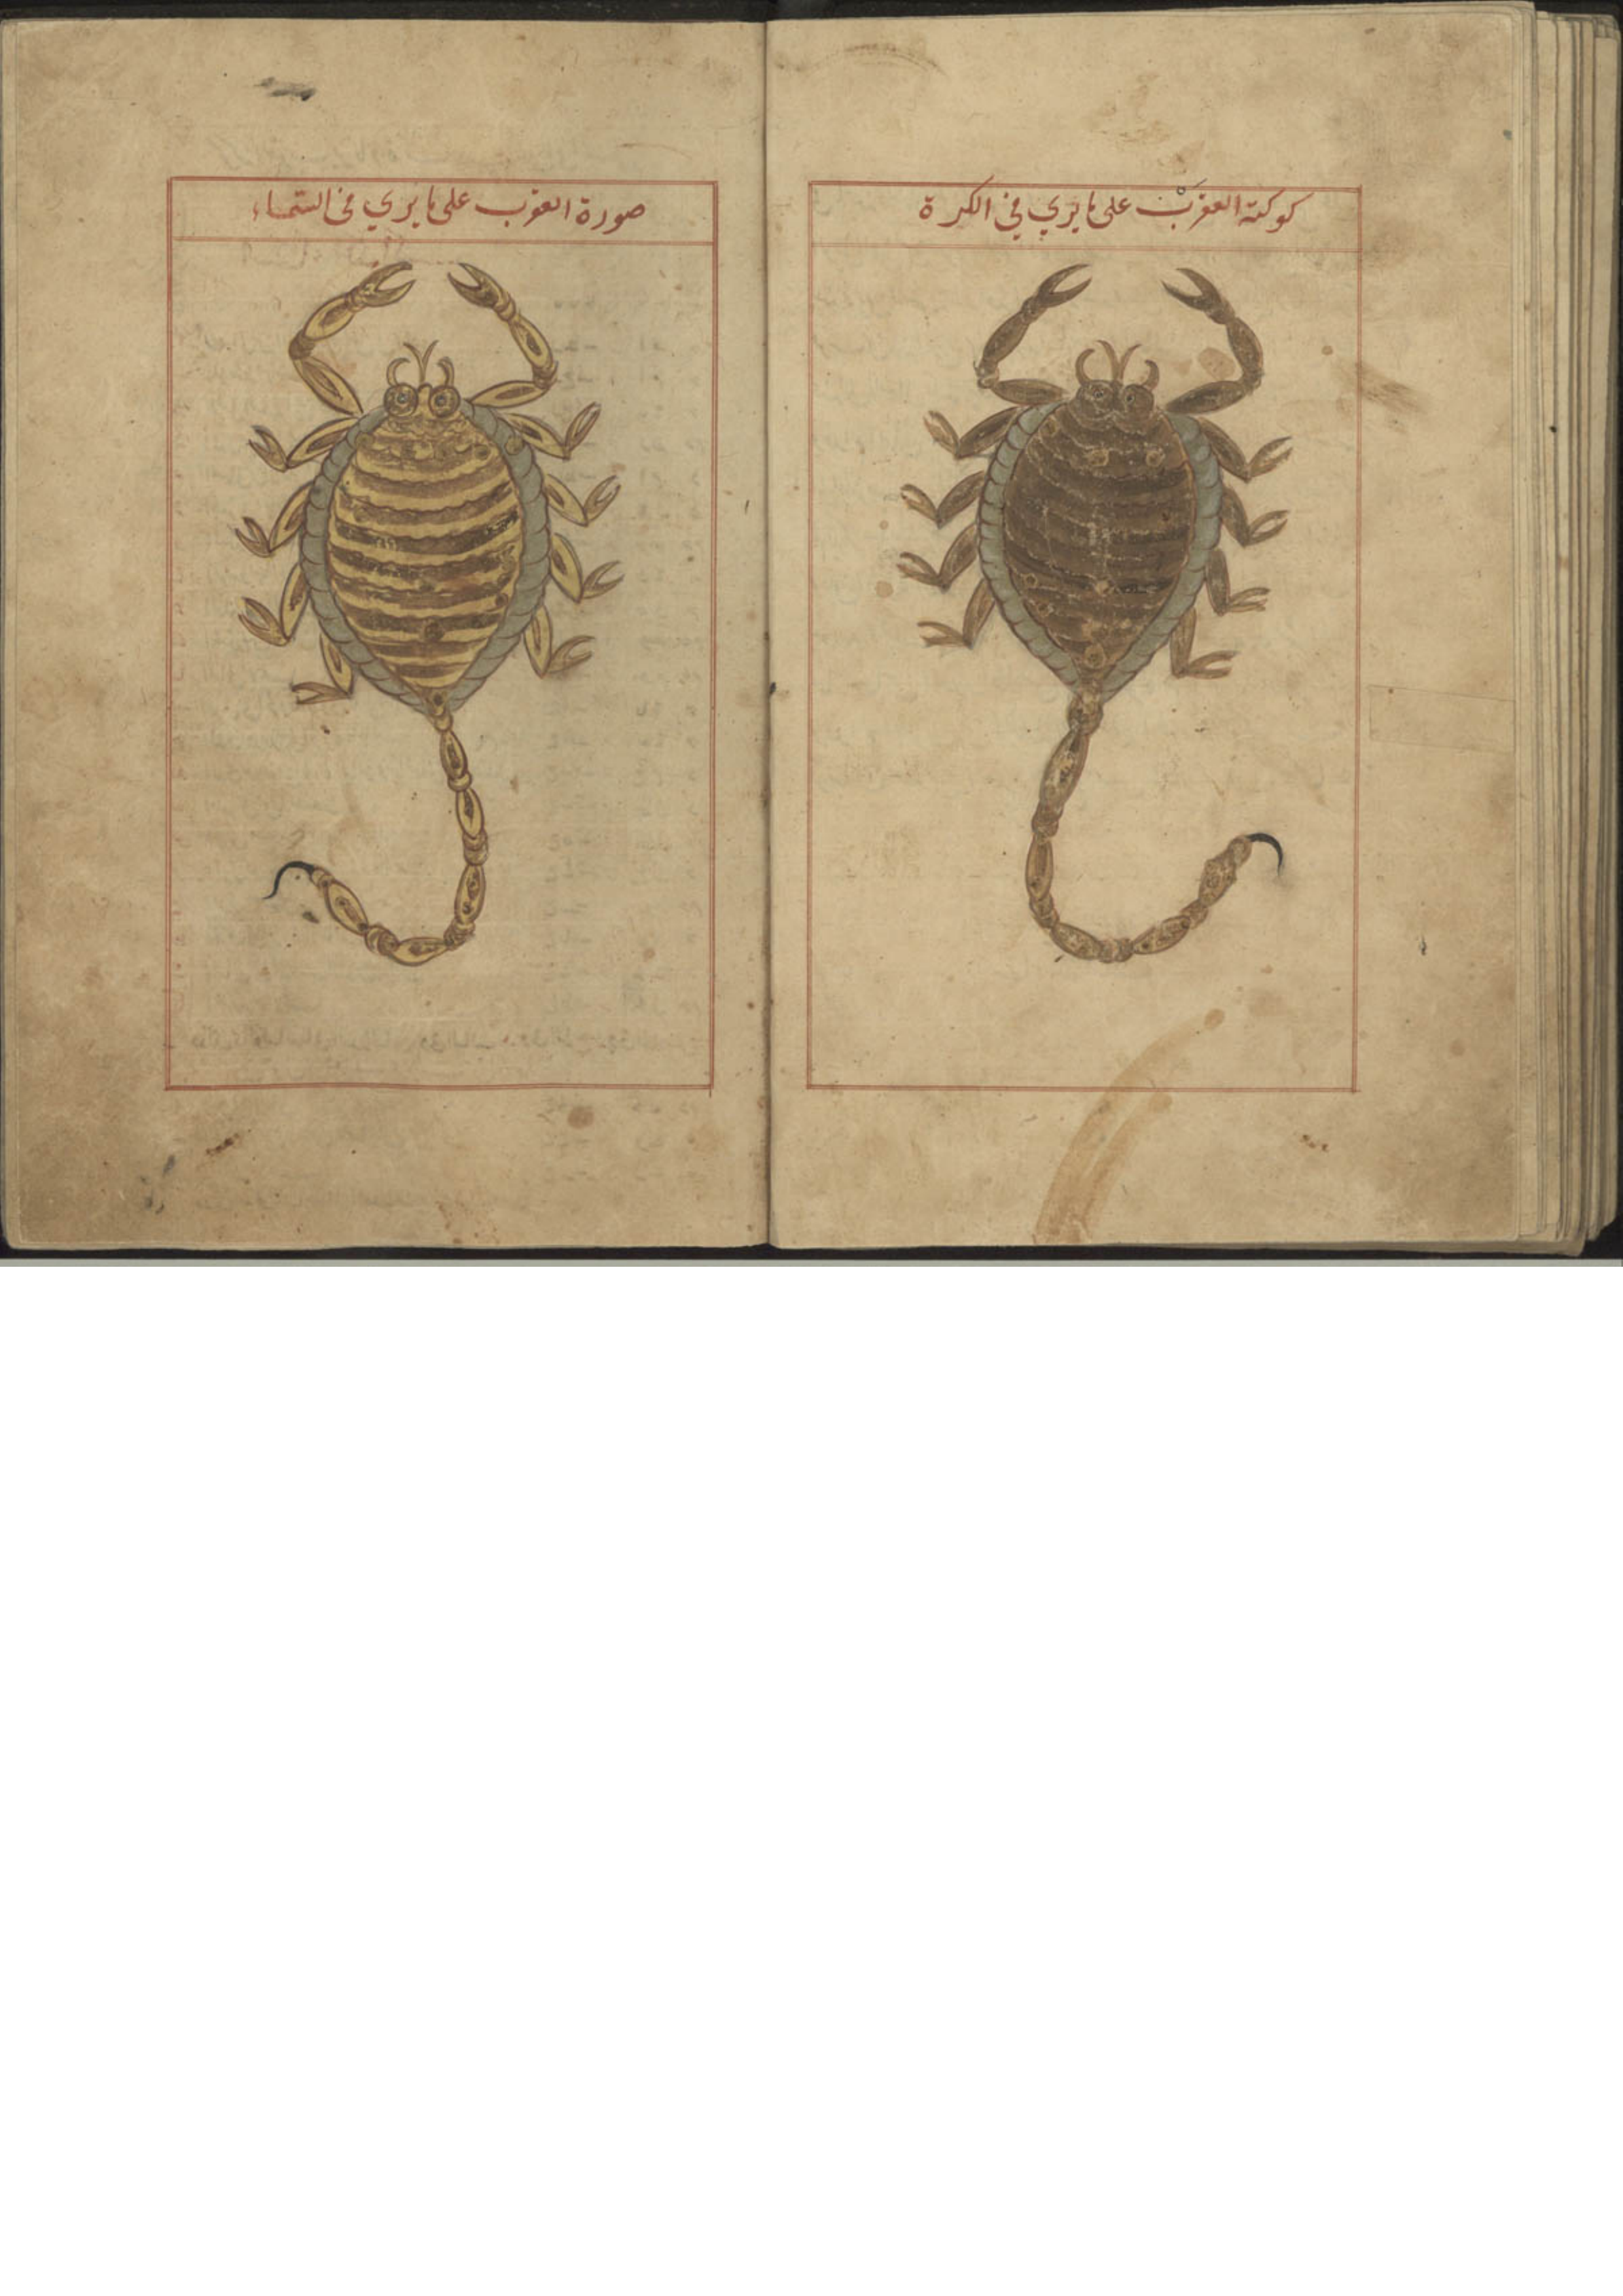 كوكبة العقرب على ما يرى في الكرة
صورة العقرب على ما يرى في السماء